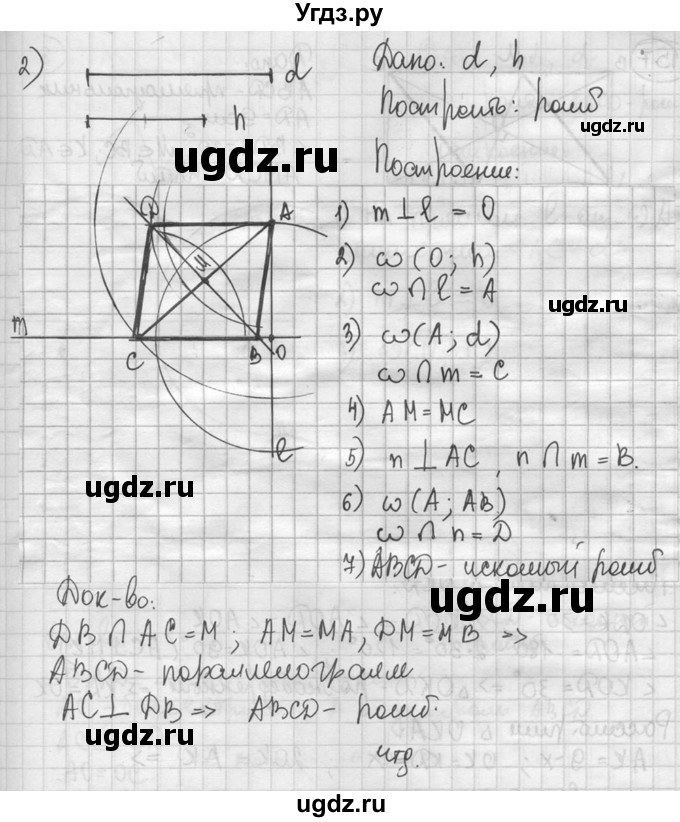 Угдз.ру
2)
d
Дано: d, h
h
Построить: ромб
ugdz.ru
ugdz.ru
Построение:
D
A
1) m ⊥ l = O
M
2) ω (O; h)
ω ∩ l = A
ugdz.ru
m
C
B
O
3) ω (A; d)
ω ∩ m = C
4) AM = MC
l
5) n ⊥ AC, n ∩ m = B.
ugdz.ru
6) ω (A; AB)
ω ∩ n = D
7) ABCD - искомый ромб
ugdz.ru
Док-во:
DB ∩ AC = M; AM = MA, DM = MB =>
ABCD - параллелограмм
AC ⊥ DB => ABCD - ромб.
ugdz.ru
чтд.
ugdz.ru
ugdz.ru